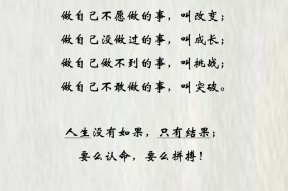 做自己不愿做的事，叫改变；
做自己没做过的事，叫成长；
做自己做不到的事，叫挑战；
做自己不敢做的事，叫突破。
人生没有如果，只有结果；
要么认命，要么拼搏！